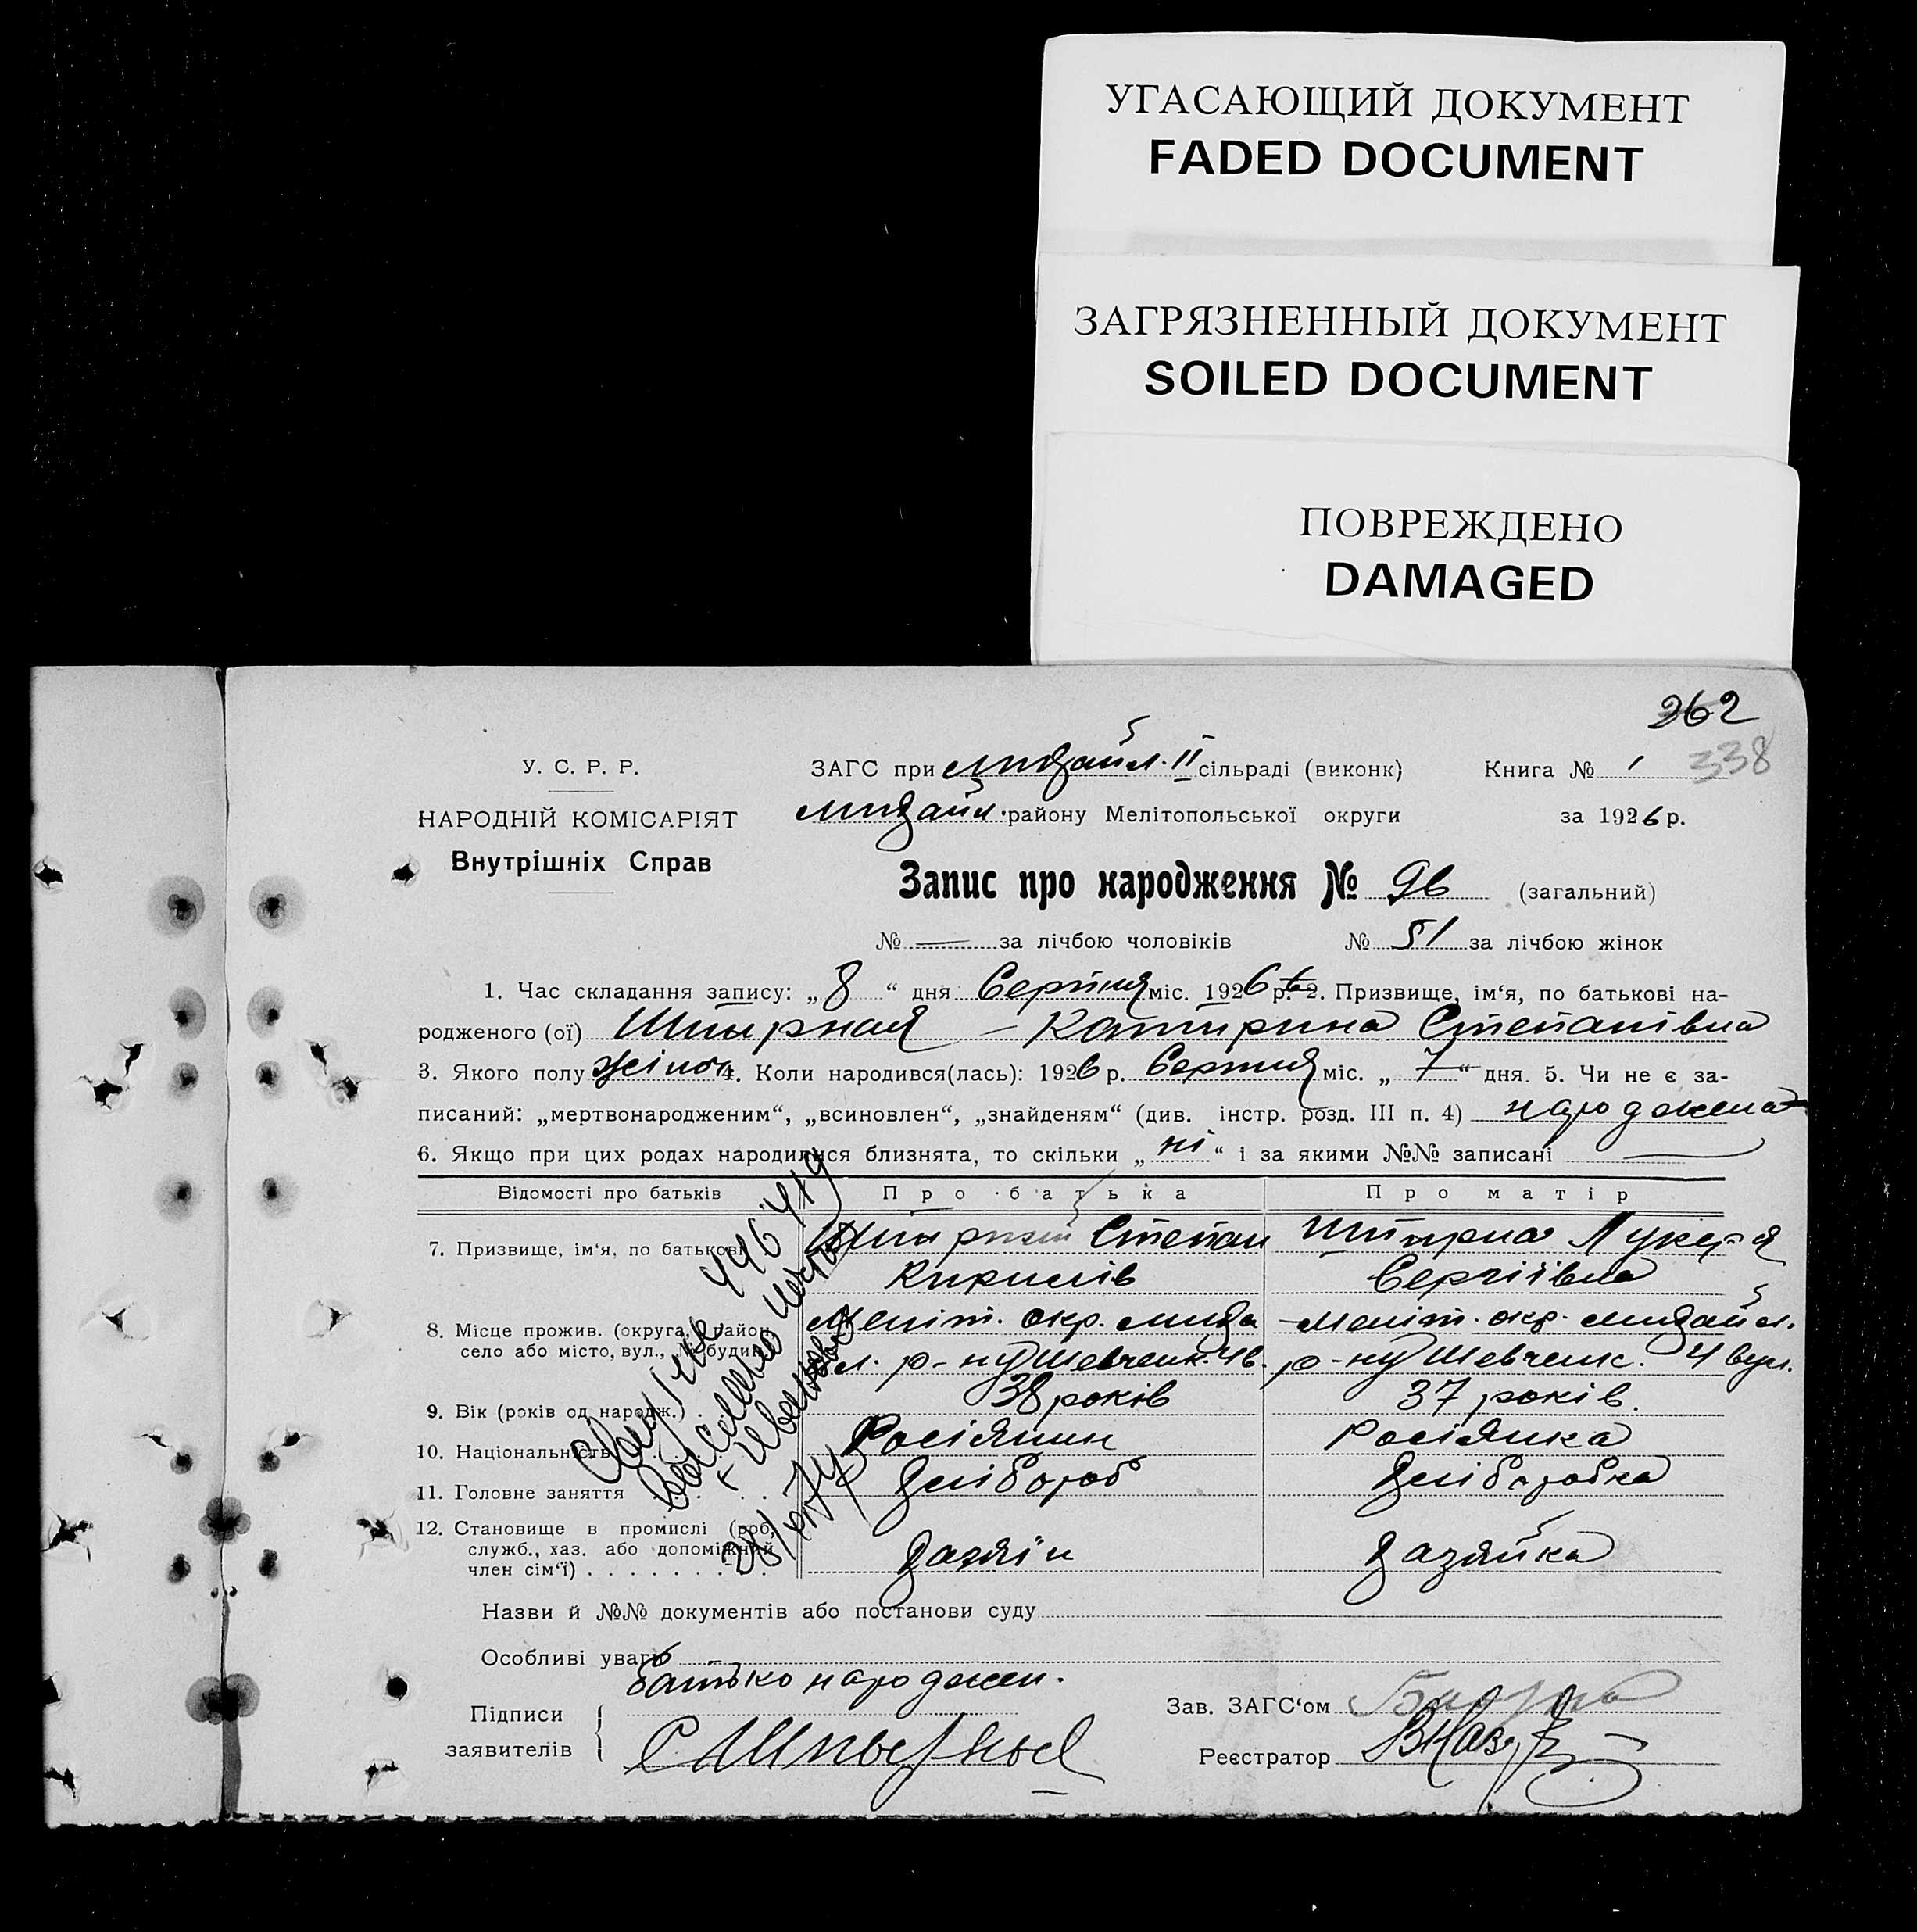 УГАСАЮЩИЙ ДОКУМЕНТ
FADED DOCUMENT
ЗАГРЯЗНЕННЫЙ ДОКУМЕНТ
SOILED DOCUMENT
ПОВРЕЖДЕНО
DAMAGED
362
338
У. С. Р. Р.
НАРОДНІЙ КОМІСАРІЯТ
Внутрішніх Справ
ЗАГС при Михайл. II сільраді (виконк) Книга № 1
Михайл. району Мелітопольської округи за 1926 р.
Запис про народження № 96 (загальний)
№ — за лічбою чоловіків № 51 за лічбою жінок
1. Час складання запису: „ 8 “ дня Серпня міс. 1926 р. 2. Призвище, ім‘я, по батькові на-
родженого (ої) Шпырная – Катирина Степанівна
3. Якого полу жіноч. 4. Коли народився(лась): 1926 р. Серпня міс. „ 7 “ дня. 5. Чи не є за-
писаний: „мертвонародженим“, „всиновлен“, „знайденям“ (див. інстр. розд. III п. 4) народжена
6. Якщо при цих родах народилися близнята, то скільки „ ні “ і за якими №№ записані —
Відомості про батьків Про батька Про матір
7. Призвище, ім‘я, по батькові Степан Лукер‘я
Кирилів Сергіївна
8. Місце прожив. (округа, район, Меліт. окр. Миха Меліт. окр. Михайл.
село або місто, вул., № будин. йл. р-ну Шевченк. 4 в. р-ну Шевченк. 4 вул.
9. Вік (років од народж.) 38 років 37 років.
10. Національність Росіянин Росіянка
11. Головне заняття Хлібороб Хліборобка
12. Становище в промислі (роб, Хазяїн Хазяйка
служб., хаз. або допоміжний
член сім‘ї)
Назви й №№ документів або постанови суду
Особливі уваги
батько народжен.
Підписи
заявителів
С Шпырный
Зав. ЗАГС‘ом
Реєстратор